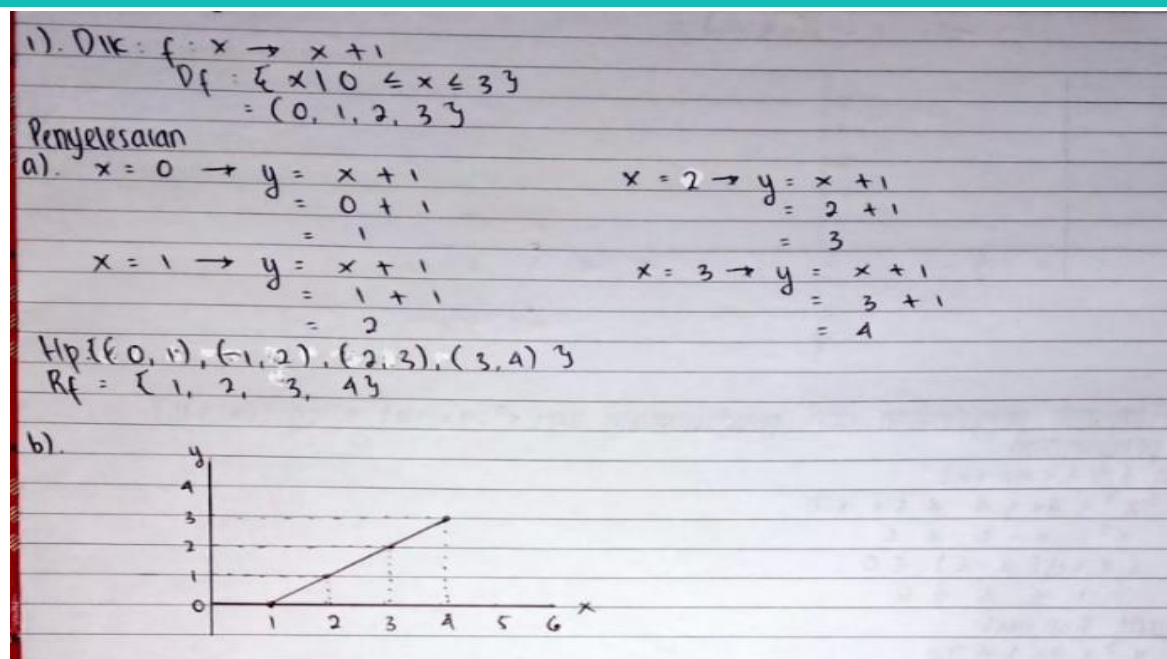 1). Dik : f : x → x + 1
Df : { x | 0 ≤ x ≤ 3 }
= ( 0, 1, 2, 3 }
Penyelesaian
a). x = 0 → y = x + 1
= 0 + 1
= 1
x = 1 → y = x + 1
= 1 + 1
= 2
x = 2 → y = x + 1
= 2 + 1
= 3
x = 3 → y = x + 1
= 3 + 1
= 4
Hp {( 0, 1 ), (-1, 2 ), ( 2, 3 ), ( 3, 4 ) }
Rf = { 1, 2, 3, 4 }
b).
y
4
3
2
1
0
1 2 3 4 5 6 x